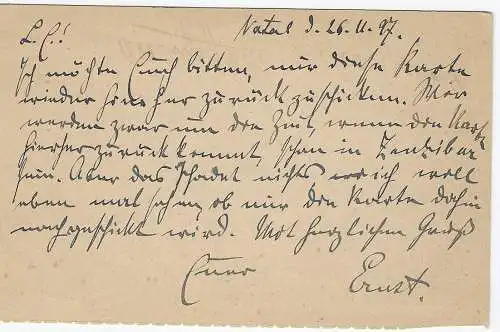 Natal d. 26.11.97.
L. C.!
Ich möchte Euch bitten, mir diese Karte
wieder hierher zurück zuschicken. Wir
werden zwar um den Zeit, wenn den Karte
hierher zurück kommt, schon in Zanzibar
sein. Aber das schadet nichts ich will
eben mal sehen, ob mir den Karte dahin
nachgeschickt wird. Mit herzlichem Gruß
Euer Ernst.